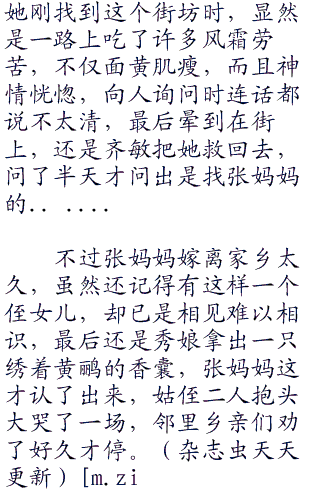 她刚找到这个街坊时，显然
是一路上吃了许多风霜劳
苦，不仅面黄肌瘦，而且神
情恍惚，向人询问时连话都
说不太清，最后晕到在街
上，还是齐敏把她救回去，
问了半天才问出是找张妈妈
的．．．．．．
不过张妈妈嫁离家乡太
久，虽然还记得有这样一个
侄女儿，却已是相见难以相
识，最后还是秀娘拿出一只
绣着黄鹂的香囊，张妈妈这
才认了出来，姑侄二人抱头
大哭了一场，邻里乡亲们劝
了好久才停。（杂志虫天天
更新）[m.zi